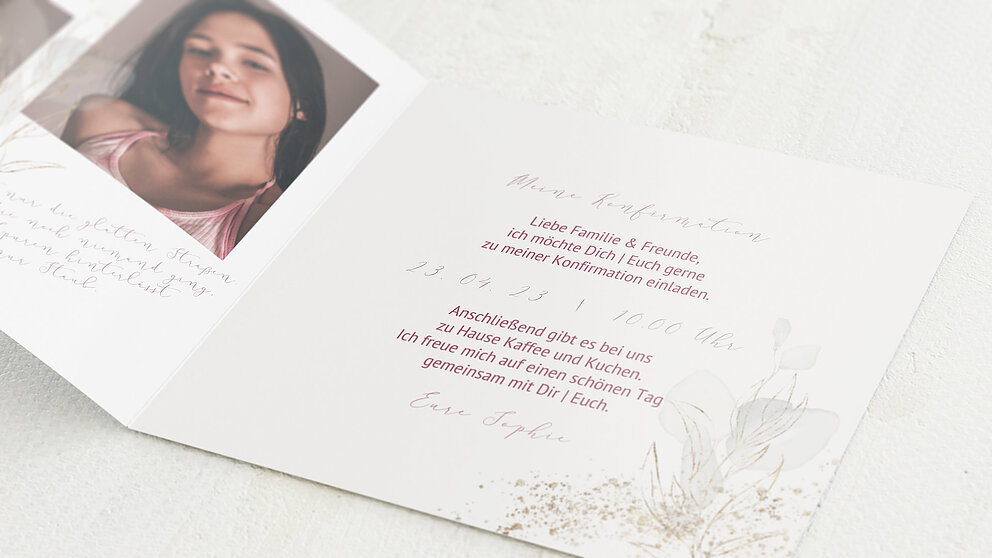 nur die glatten Straßen
noch niemand ging.
hinterlässt
Staub.
Meine Konfirmation
Liebe Familie & Freunde,
ich möchte Dich | Euch gerne
zu meiner Konfirmation einladen.
23. 04. 23 | 10.00 Uhr
Anschließend gibt es bei uns
zu Hause Kaffee und Kuchen.
Ich freue mich auf einen schönen Tag
gemeinsam mit Dir | Euch.
Eure Sophie